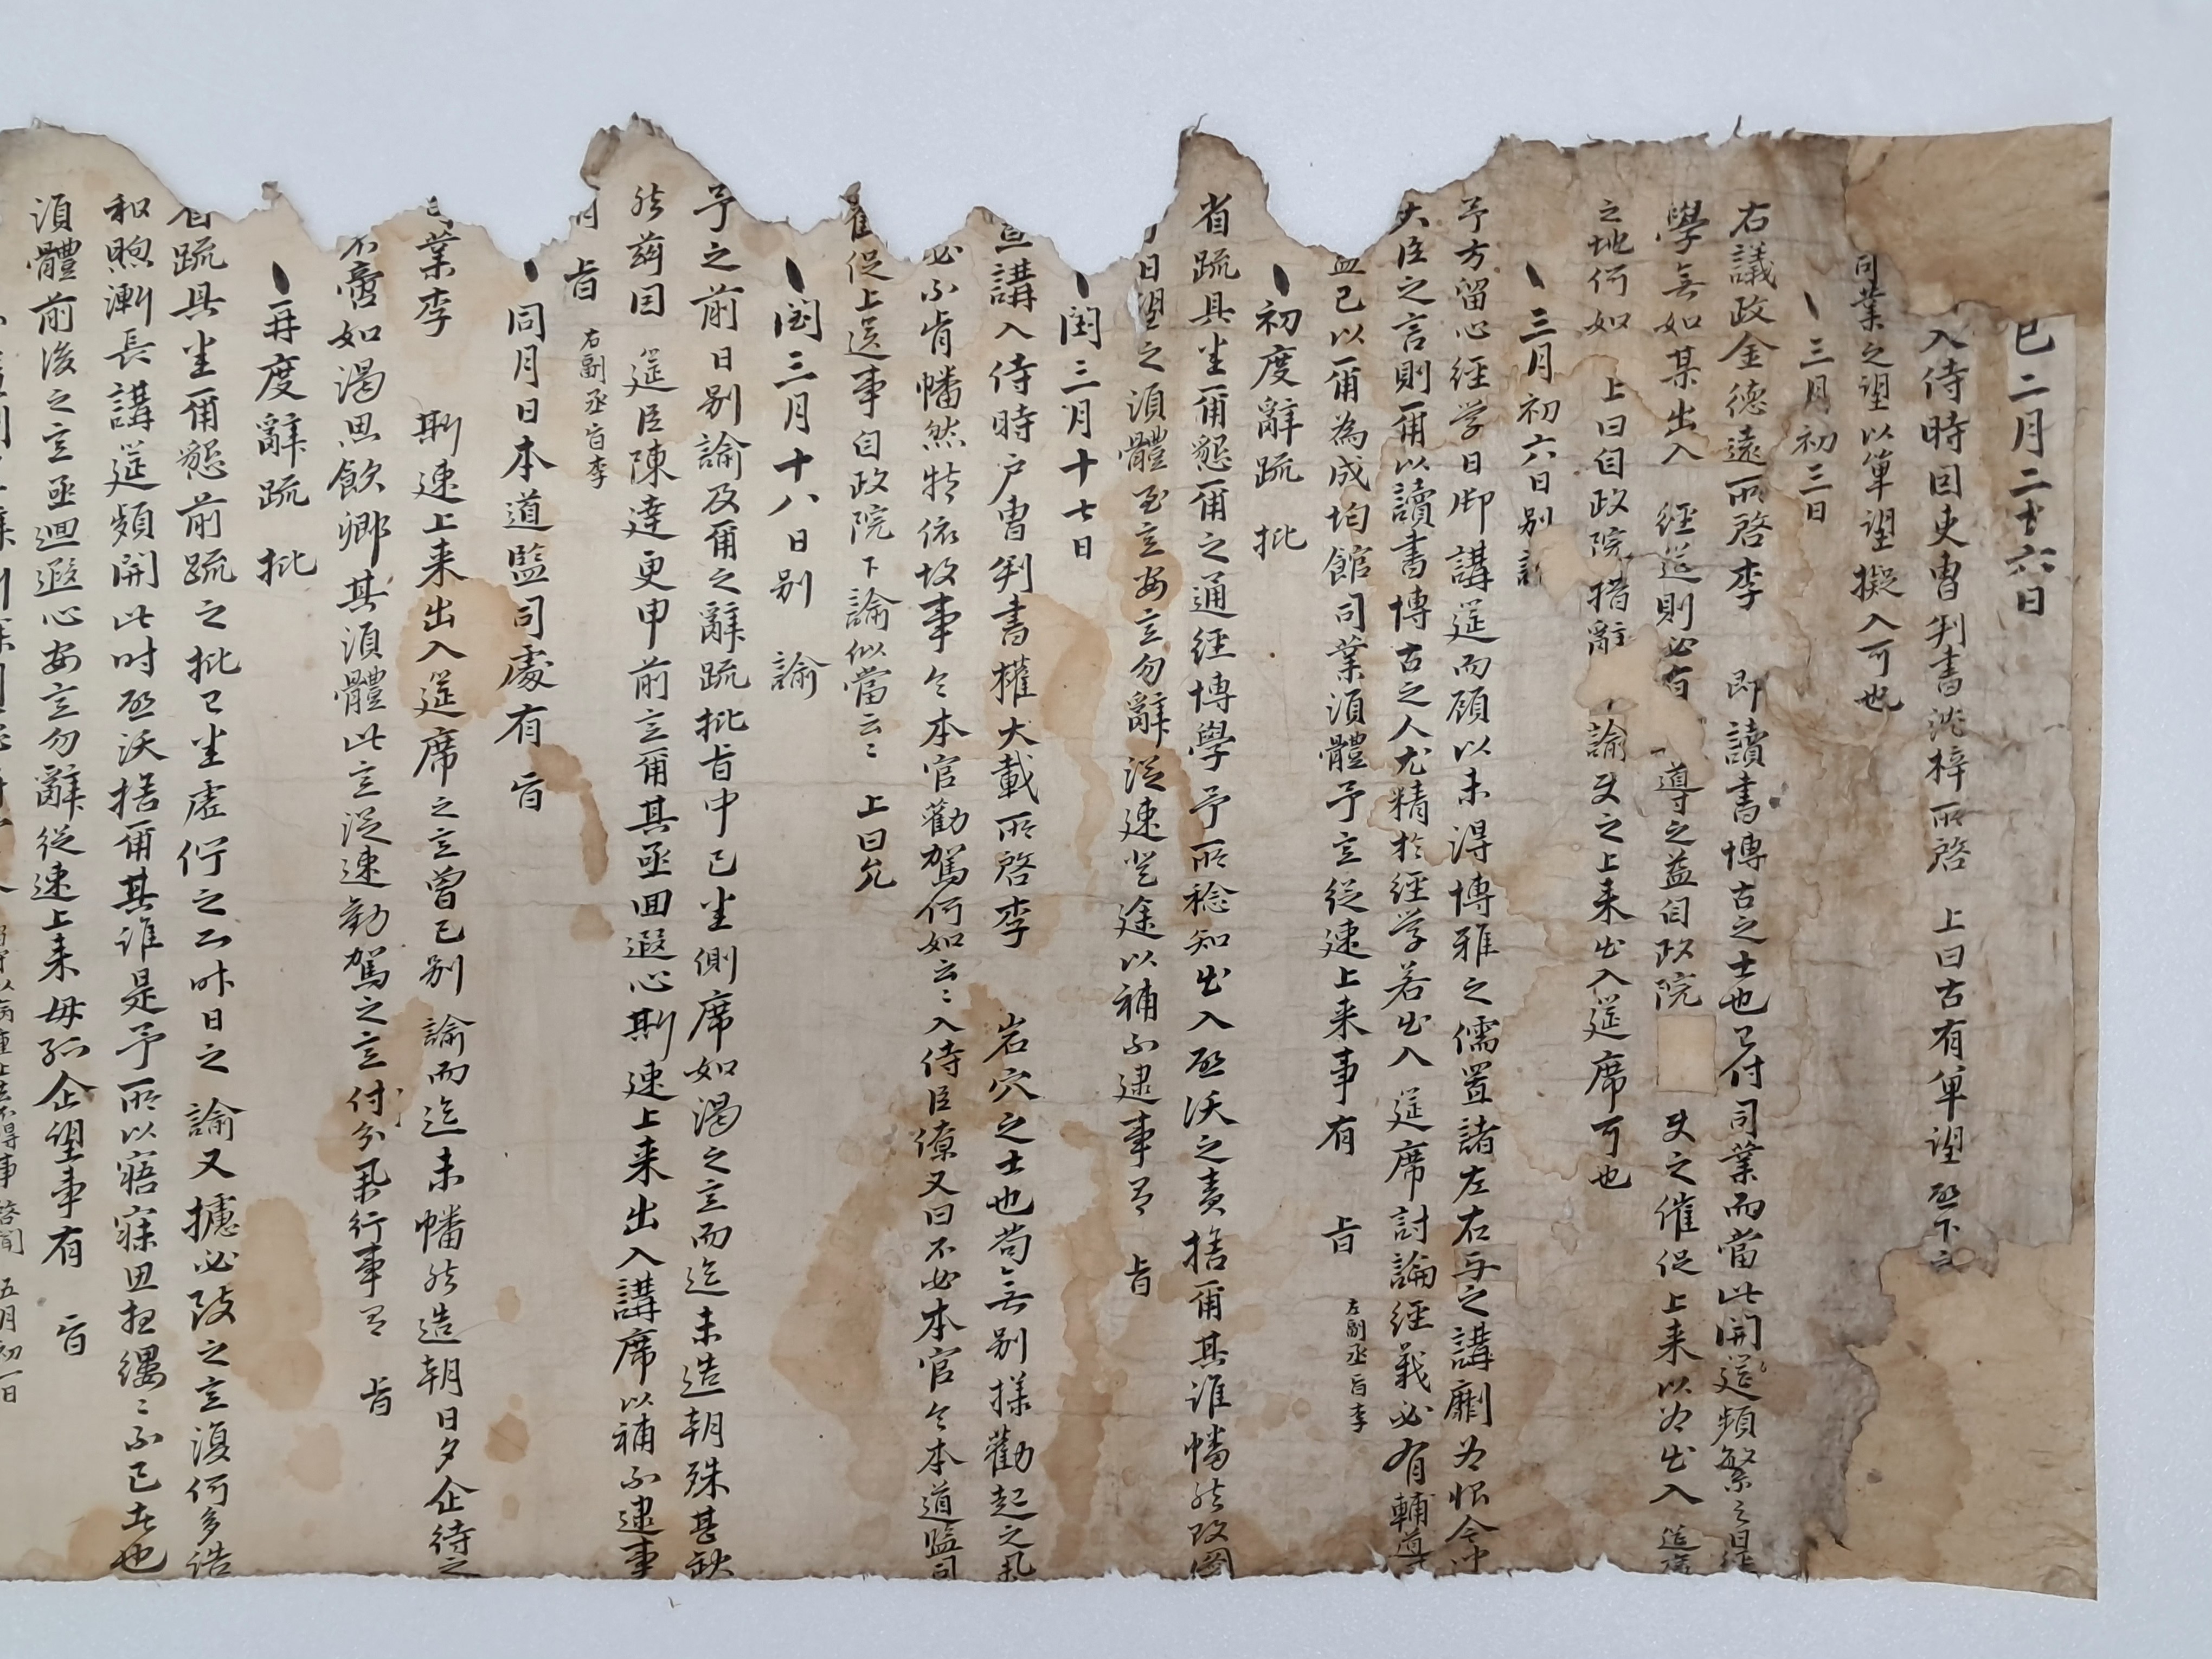 巳二月二十六日
入侍時因吏曹判書沈梓所啓 上曰古有單望啓下之
司業之望以單望擬入可也
三月初三日
右議政金德遠所啓李 即讀書博古之士也已付司業而當此開筵頻繁之日
學無如某出入 經筵則必有 導之益自政院 更之催促上来以為出入
之地何如 上曰自政院措辭 諭更之上来出入筵席可也
三月初六日别
予方留心經学日御講筵而顧以未得博雅之儒置諸左右与之講劘为恨今
大臣之言則爾以讀書博古之人尤精於經学若出入 筵席討論經義必有輔導
益已以爾為成均館司業湏體予意從速上来事有 旨 左副丞旨李
初度辭疏 批
省疏具悉爾懇爾之通經博學予所稔知出入啓沃之責捨爾其誰幡然改圖
日望之湏體至意安意勿辭從速登途以補不逮事有 旨
閏三月十七日
宣講入侍時户曹判書權大載所啓李 岩穴之士也尚無别樣勸起之
必不肯幡然特依故事令本官勸駕何如云云入侍臣僚又曰不必本官令本道監司
催促上送事自政院下諭似當云云 上曰允
閏三月十八日别 諭
予之前日别諭及爾之辭疏批旨中已悉側席如渴之意而迄未造朝殊甚缺
然玆因 筵臣陳達更申前意爾其亟回遐心斯速上来出入講席以補不逮事
有 旨 右副丞旨李
同月日本道監司處有 旨
司業李 斯速上来出入筵席之意曾已别 諭而迄未幡然造朝日夕企待之
不啻如渴思飲卿其湏體此意從速勸駕之意付分行事有 旨
再度辭疏 批
省疏具悉爾懇前疏之批已悉虛佇之而昨日之 諭又攄必致之意復何多誥
和煦漸長講筵頻開此时啓沃捨爾其誰是予所以寤寐思想縷縷不已者也
湏體前後之意亟迴遐心安意勿辭從速上来毋孤企望事有 旨
五月初一日